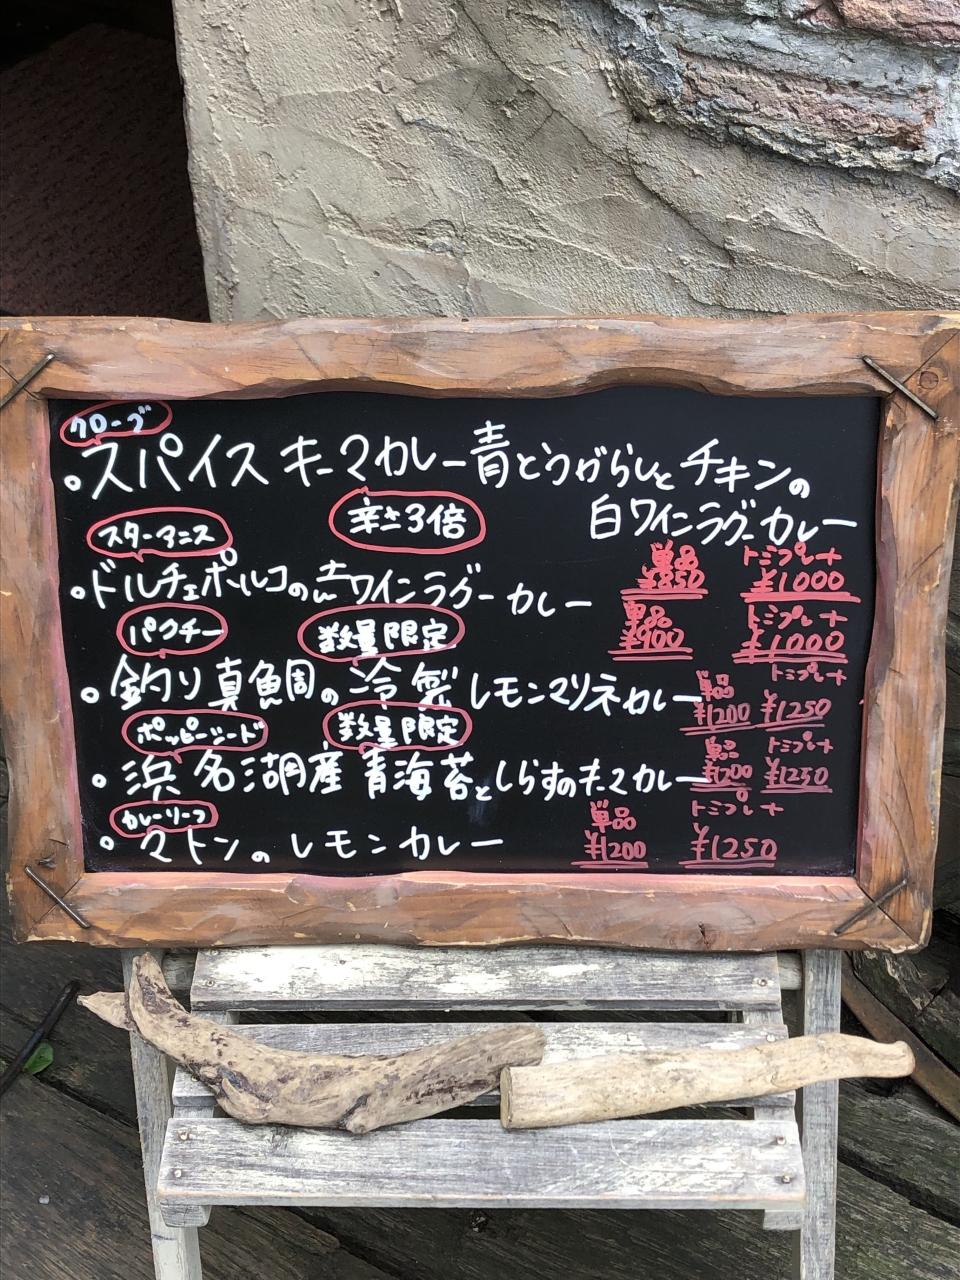 クローブ
・スパイスキーマカレー青とうがらしとチキンの
白ワインラグーカレー
スターアニス 辛さ3倍
単品 トミプレート
¥850 ¥1000
・ドルチェポルコの赤ワインラグーカレー
単品 トミプレート
¥900 ¥1000
パクチー 数量限定
・釣り真鯛の冷製レモンマリネカレー
単品 トミプレート
¥1200 ¥1250
ポッピーシード 数量限定
・浜名湖産青海苔としらすのキーマカレー
単品 トミプレート
¥1200 ¥1250
カレーリーフ
・マトンのレモンカレー
単品 トミプレート
¥1200 ¥1250